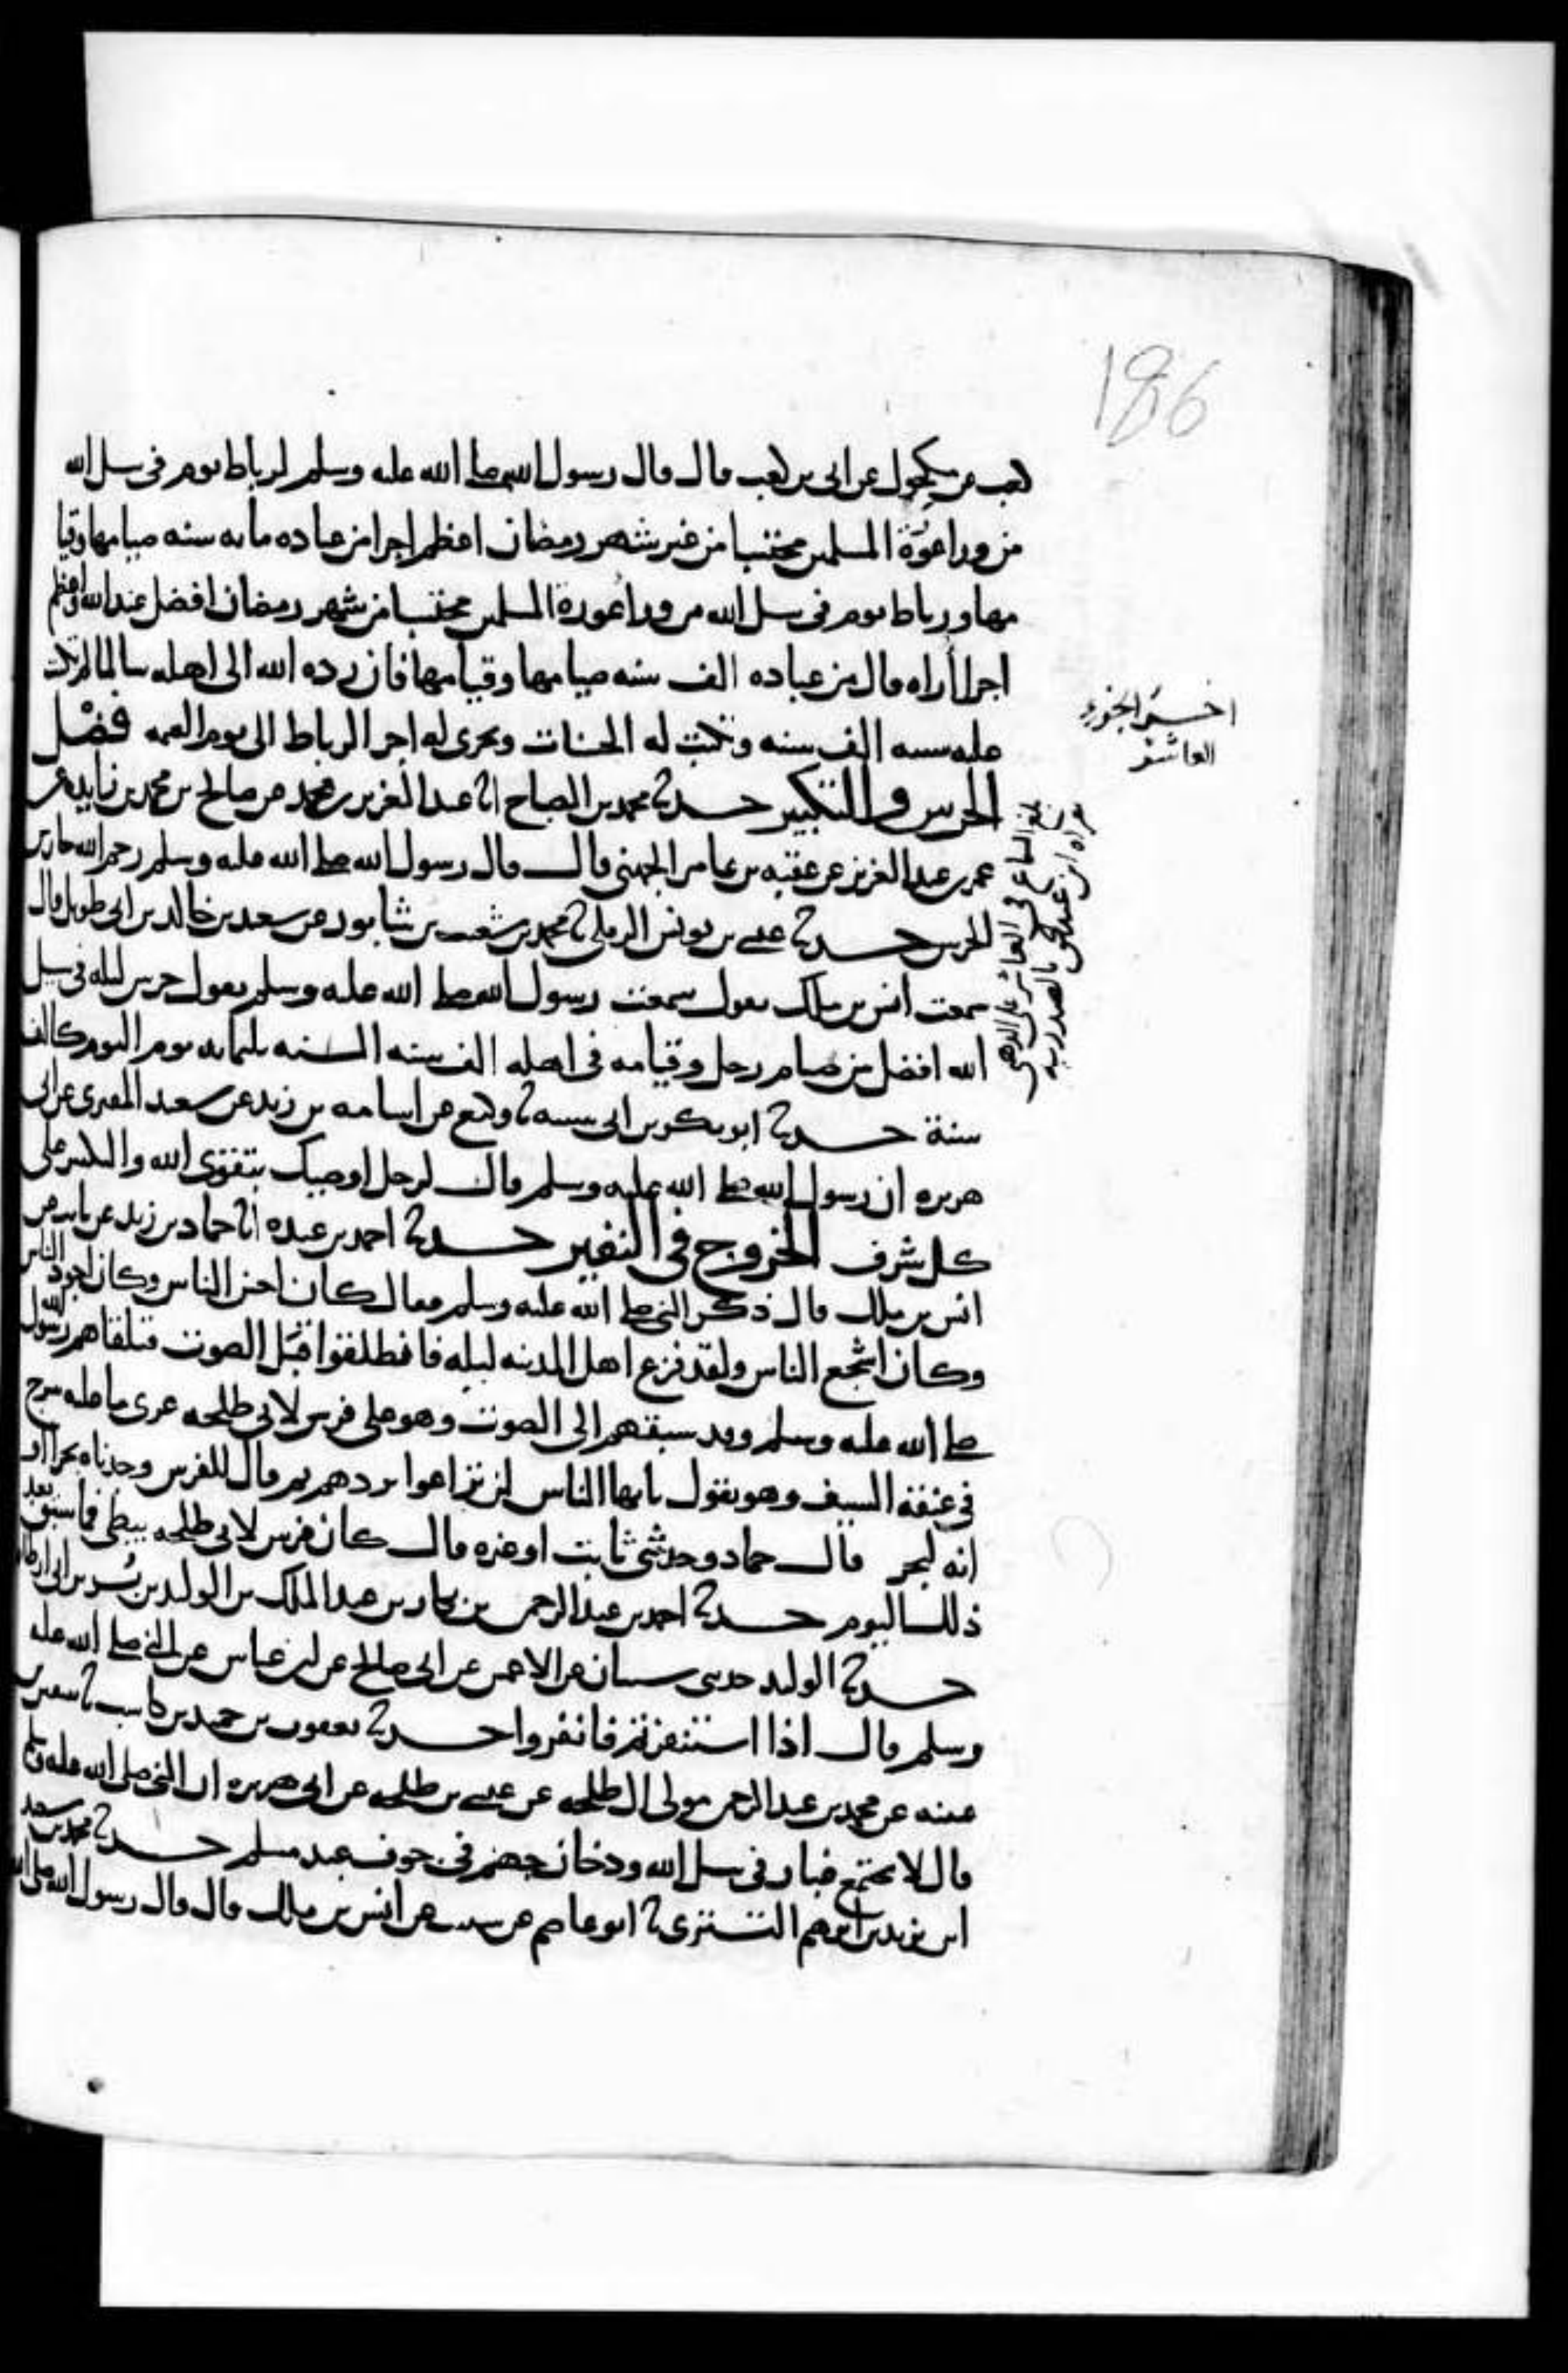 186
كعب عن مكحول عن ابي بن كعب قال قال رسول الله صلى الله عليه وسلم لرباط يوم في سبيل الله
من ورا عورة المسلمين محتسبا من غير شهر رمضان اعظم اجرا من عبادة مائة سنة صيامها وقيا
مها ورباط يوم في سبيل الله من ورا عورة المسلمين محتسبا من شهر رمضان افضل عند الله واعظم
اجرا أراه قال من عبادة الف سنة صيامها وقيامها فان رده الله الى اهله سالما لم تكتب
عليه سيئة الف سنة وتكتب له الحسنات ويجرى له اجر الرباط الى يوم القيمة فضل
الحرس والتكبير حدثنا محمد بن الصباح انا عبد العزيز بن محمد عن صالح بن محمد بن زايدة عن
عمر بن عبد العزيز عن عقبة بن عامر الجهني قال قال رسول الله صلى الله عليه وسلم رحم الله حارس
الحرس حدثنا عيسى بن يونس الرملي نا محمد بن شعيب بن شابور عن سعيد بن خالد بن ابي طويل قال
سمعت انس بن ملك يقول سمعت رسول الله صلى الله عليه وسلم يقول حرس ليلة في سبيل
الله افضل من صيام رجل وقيامه في اهله الف سنة السنة ثلثماية يوم اليوم كالف
سنة حدثنا ابو بكر بن ابي شيبة نا وكيع عن اسامة بن زيد عن سعيد المقبري عن ابي
هريرة ان رسول الله صلى الله عليه وسلم قال لرجل اوصيك بتقوى الله والتكبير على
كل شرف الخروج في النفير حدثنا احمد بن عبدة انا حماد بن زيد عن ثابت عن
انس بن ملك قال ذكر النبي صلى الله عليه وسلم فقال كان احسن الناس وكان اجود الناس
وكان اشجع الناس ولقد فزع اهل المدينة ليلة فانطلقوا قبل الصوت فتلقاهم رسول الله
صلى الله عليه وسلم وقد سبقهم الى الصوت وهو على فرس لابي طلحة عرى ما عليه سرج
في عنقه السيف وهو يقول يايها الناس لن تراعوا يردهم ثم قال للفرس وجدناه بحرا او
انه لبحر قال حماد وحدثني ثابت او غيره قال كان فرس لابي طلحة يبطي فما سبق بعد
ذلك اليوم حدثنا احمد بن عبد الرحمن بن بكار بن عبد الملك بن الوليد بن بسر بن ابي ارطاة
حدثنا الوليد حدثني شيبان عن الاعمش عن ابي صالح عن ابن عباس عن النبي صلى الله عليه
وسلم قال اذا استنفرتم فانفروا حدثنا يعقوب بن حميد بن كاسب نا سفين بن
عيينة عن محمد بن عبد الرحمن مولى ال طلحة عن عيسى بن طلحة عن ابي هريرة ان النبي صلى الله عليه وسلم
قال لا يجتمع غبار في سبيل الله ودخان جهنم في جوف عبد مسلم حدثنا محمد بن سعيد
ابن يزيد بن ابرهيم التستري نا ابو عاصم عن شبيب عن انس بن ملك قال قال رسول الله صلى الله
اخر الجزء
العاشر
بلغ السماع في العاشر على